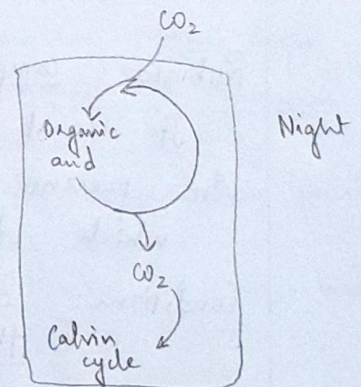 CO₂
Organic
acid
Night
CO₂
Calvin
cycle